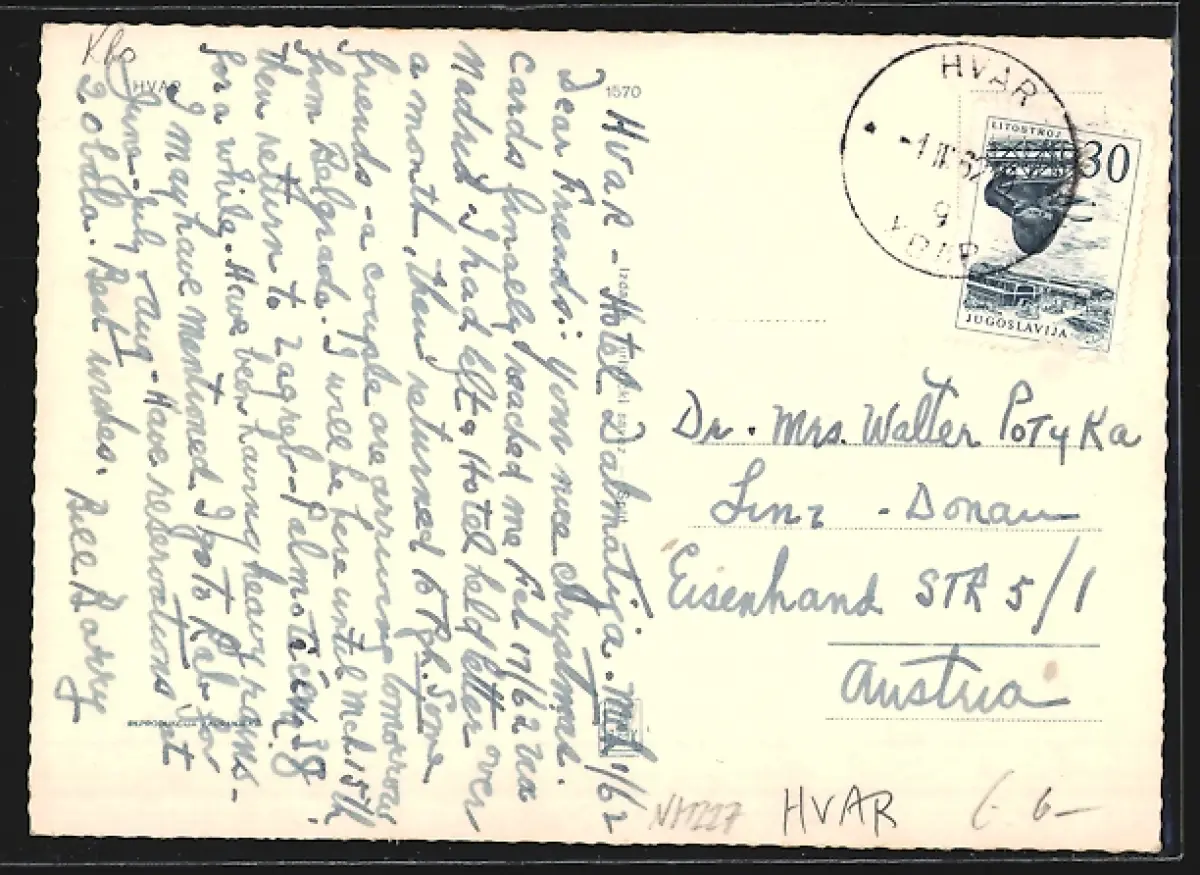 Kbp
HVAR
1570
Hvar - Hotel Dalmatija. Mch 1/62
Dear Friends: Your nice Chrystmas
cards finaely reached me Feb 17/62 via
Madrid - I had left & Hotel held letter over
a month, then returned to Pgh. Some
friends - a couple are arriving tomorrow
from Belgrade. I will be here until Mch. 15th
then return to Zagreb - Palmotićeva 38
for a while. Have been having heavy rains -
I may have mentioned I go to Rab for
June - July & Aug - Have reservations at
. Best wishes. Bill Barry
REPRODUKCIJA ZABRANJENA
HVAR
-1 III 62
9
ХВАР
LITOSTROJ
30
JUGOSLAVIJA
Dr. Mrs. Walter Potyka
Linz - Donau
Eisenhand STR 5/1
Austria
HVAR
6-